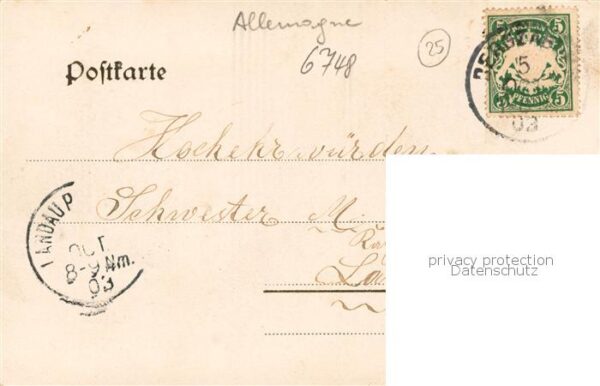 Allemagne
6748
25
5 5
5
OCT
03
5 PFENNIG 5
Postkarte
Hochehrwürden
Schwester M.
La
LANDAU P
OCT
8-9 Nm.
03
privacy protection
Datenschutz